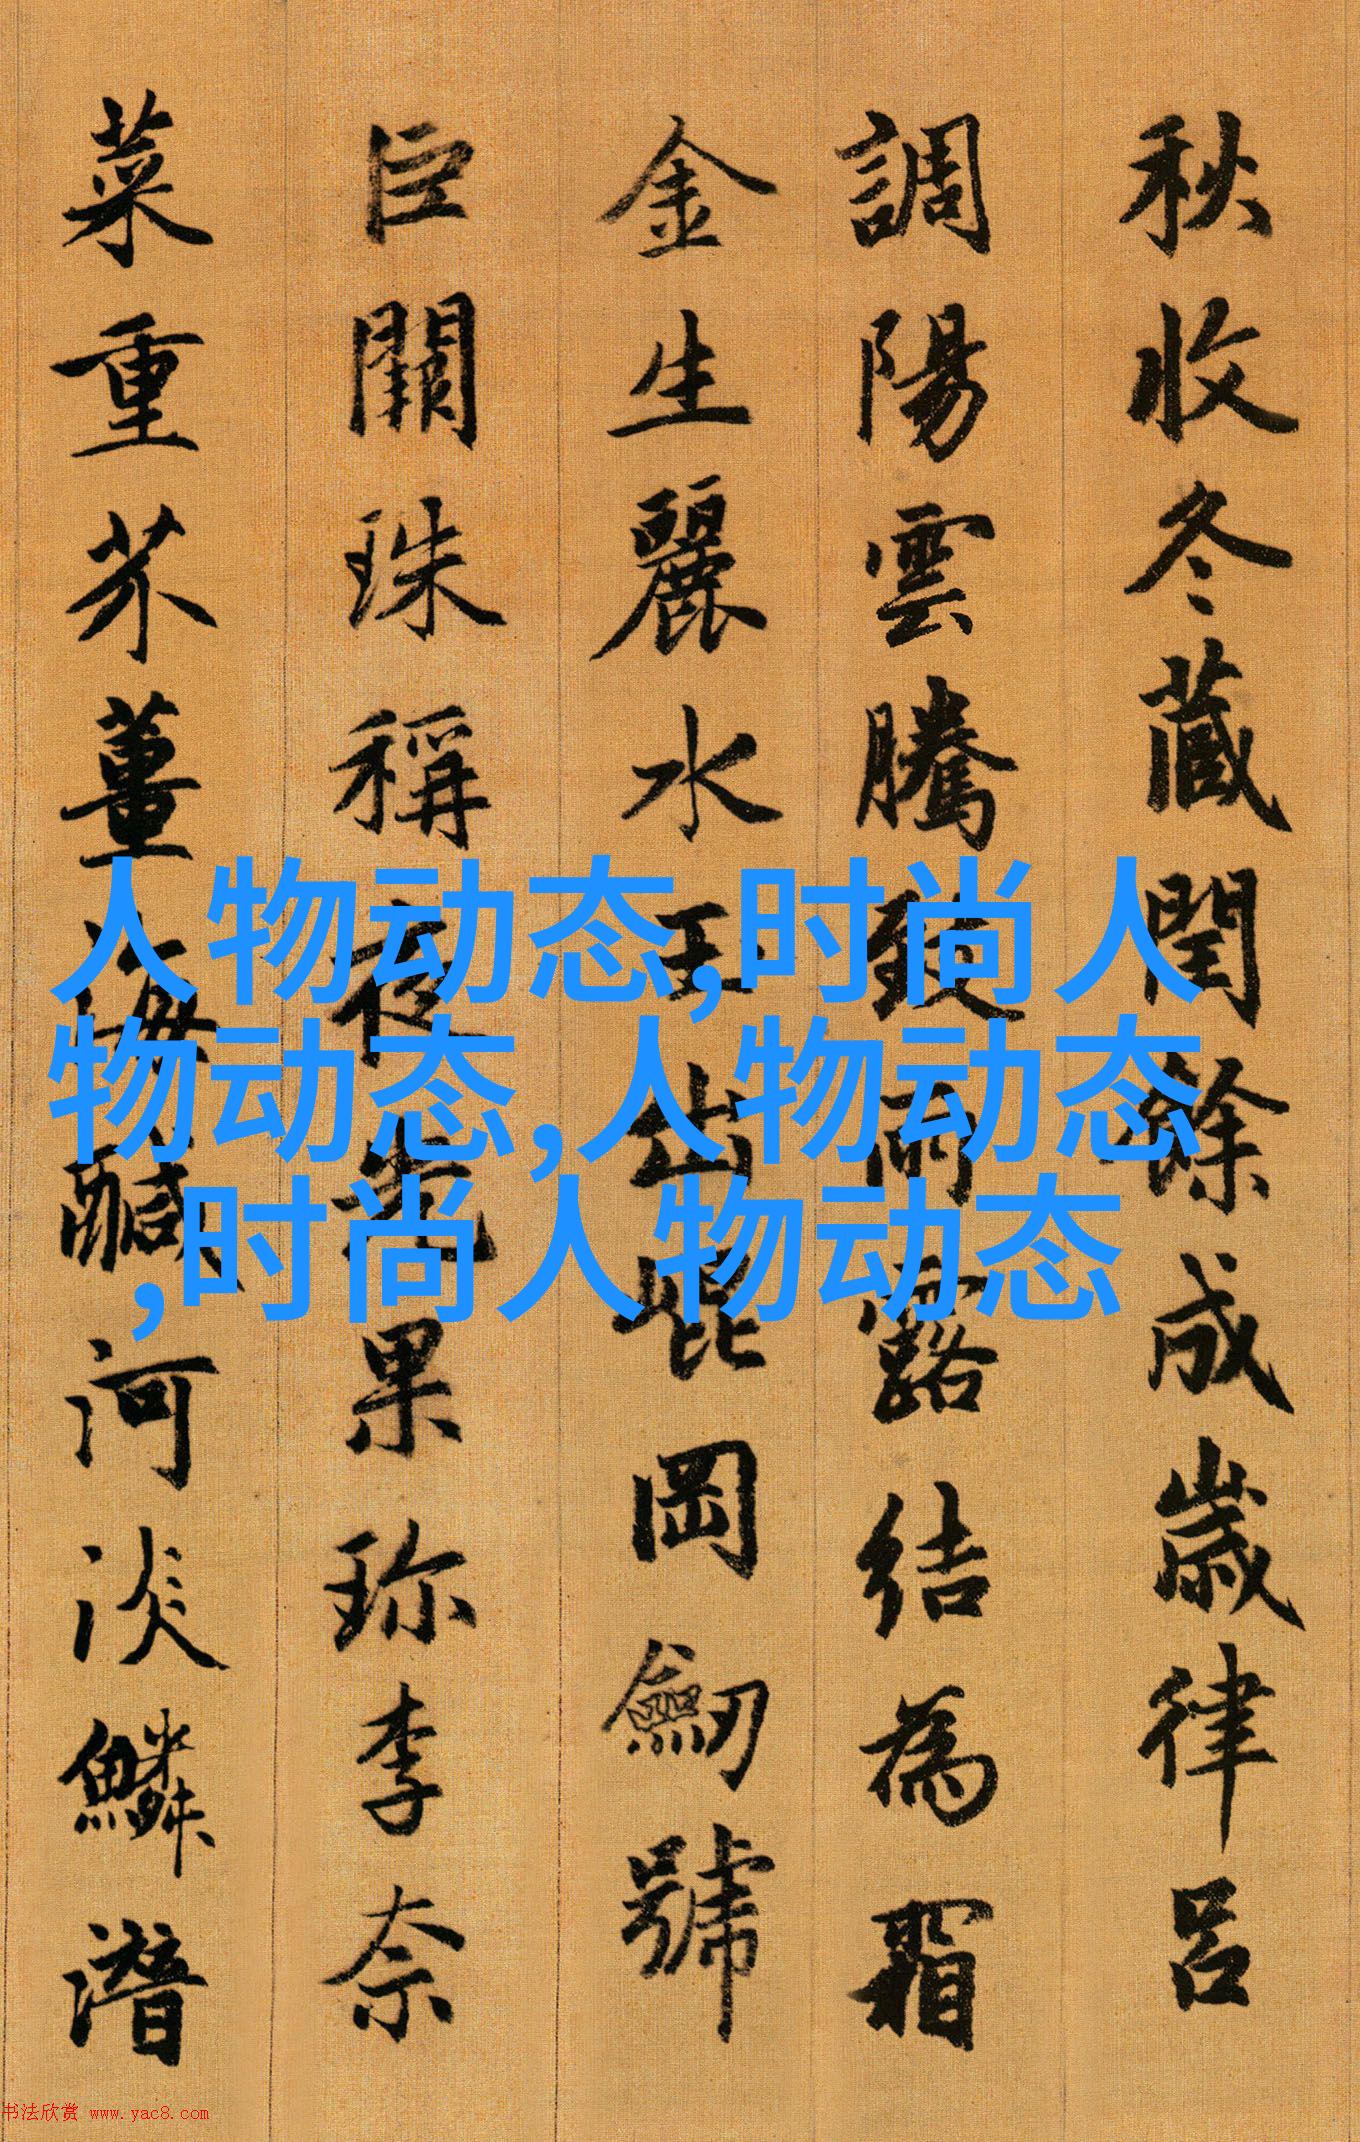 秋收冬藏閏餘成歲律呂
調陽雲騰致雨露結為霜
金生麗水玉出崐岡劒號
巨闕珠稱夜光果珎李奈
菜重芥薑海鹹河淡鱗潛
人物动态,时尚人
物动态,人物动态
,时尚人物动态
书法欣赏 www.yac8.com